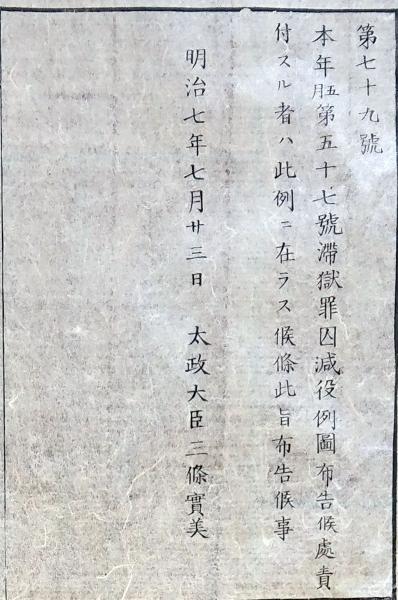 第七十九號
本年五月第五十七號滯獄罪囚減役例圖布告候處責
付スル者ハ此例ニ在ラス候條此旨布告候事
明治七年七月廿三日　太政大臣三條實美